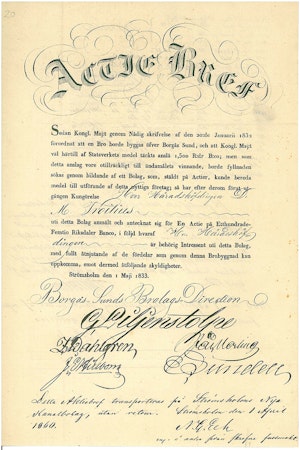 ACTIE BREF
Sedan Kongl. Majt genom Nådig skrifvelse af den 20de Januarii 1832
förordnat att en Bro borde byggas öfver Borgås Sund, och att Kongl. Majt
väl härtill af Statsverkets medel täckts anslå 1,500 Rdr Bco; men som
detta anslag vore otillräckligt till ändamålets vinnande, borde fyllnaden
sökas genom bildande af ett Bolag, som, stäldt på Actier, kunde bereda
medel till utförande af detta nyttiga företag; så har efter derom först ut-
gången Kungörelse Herr Häradshöfdingen D.
M. Troilius
uti detta Bolag anmält och antecknat sig för En Actie på Etthundrade-
Femtio Riksdaler Banco, i följd hvaraf Herr Häradshöf-
dingen är behörig Intressent uti detta Bolag,
med fullt åtnjutande af de fördelar som genom denna Brobyggnad kan
uppkomma, emot dermed åtföljande skyldigheter.
Strömsholm den 1 Maji 1833.
Borgås Sunds Brolags Direction
G Liljenstolpe
Dahlgren
E Sundell
Detta Aktiebref transporteras på Strömsholms Nya
Kanalbolag, utan retour. Strömsholm den 1 April
1860.